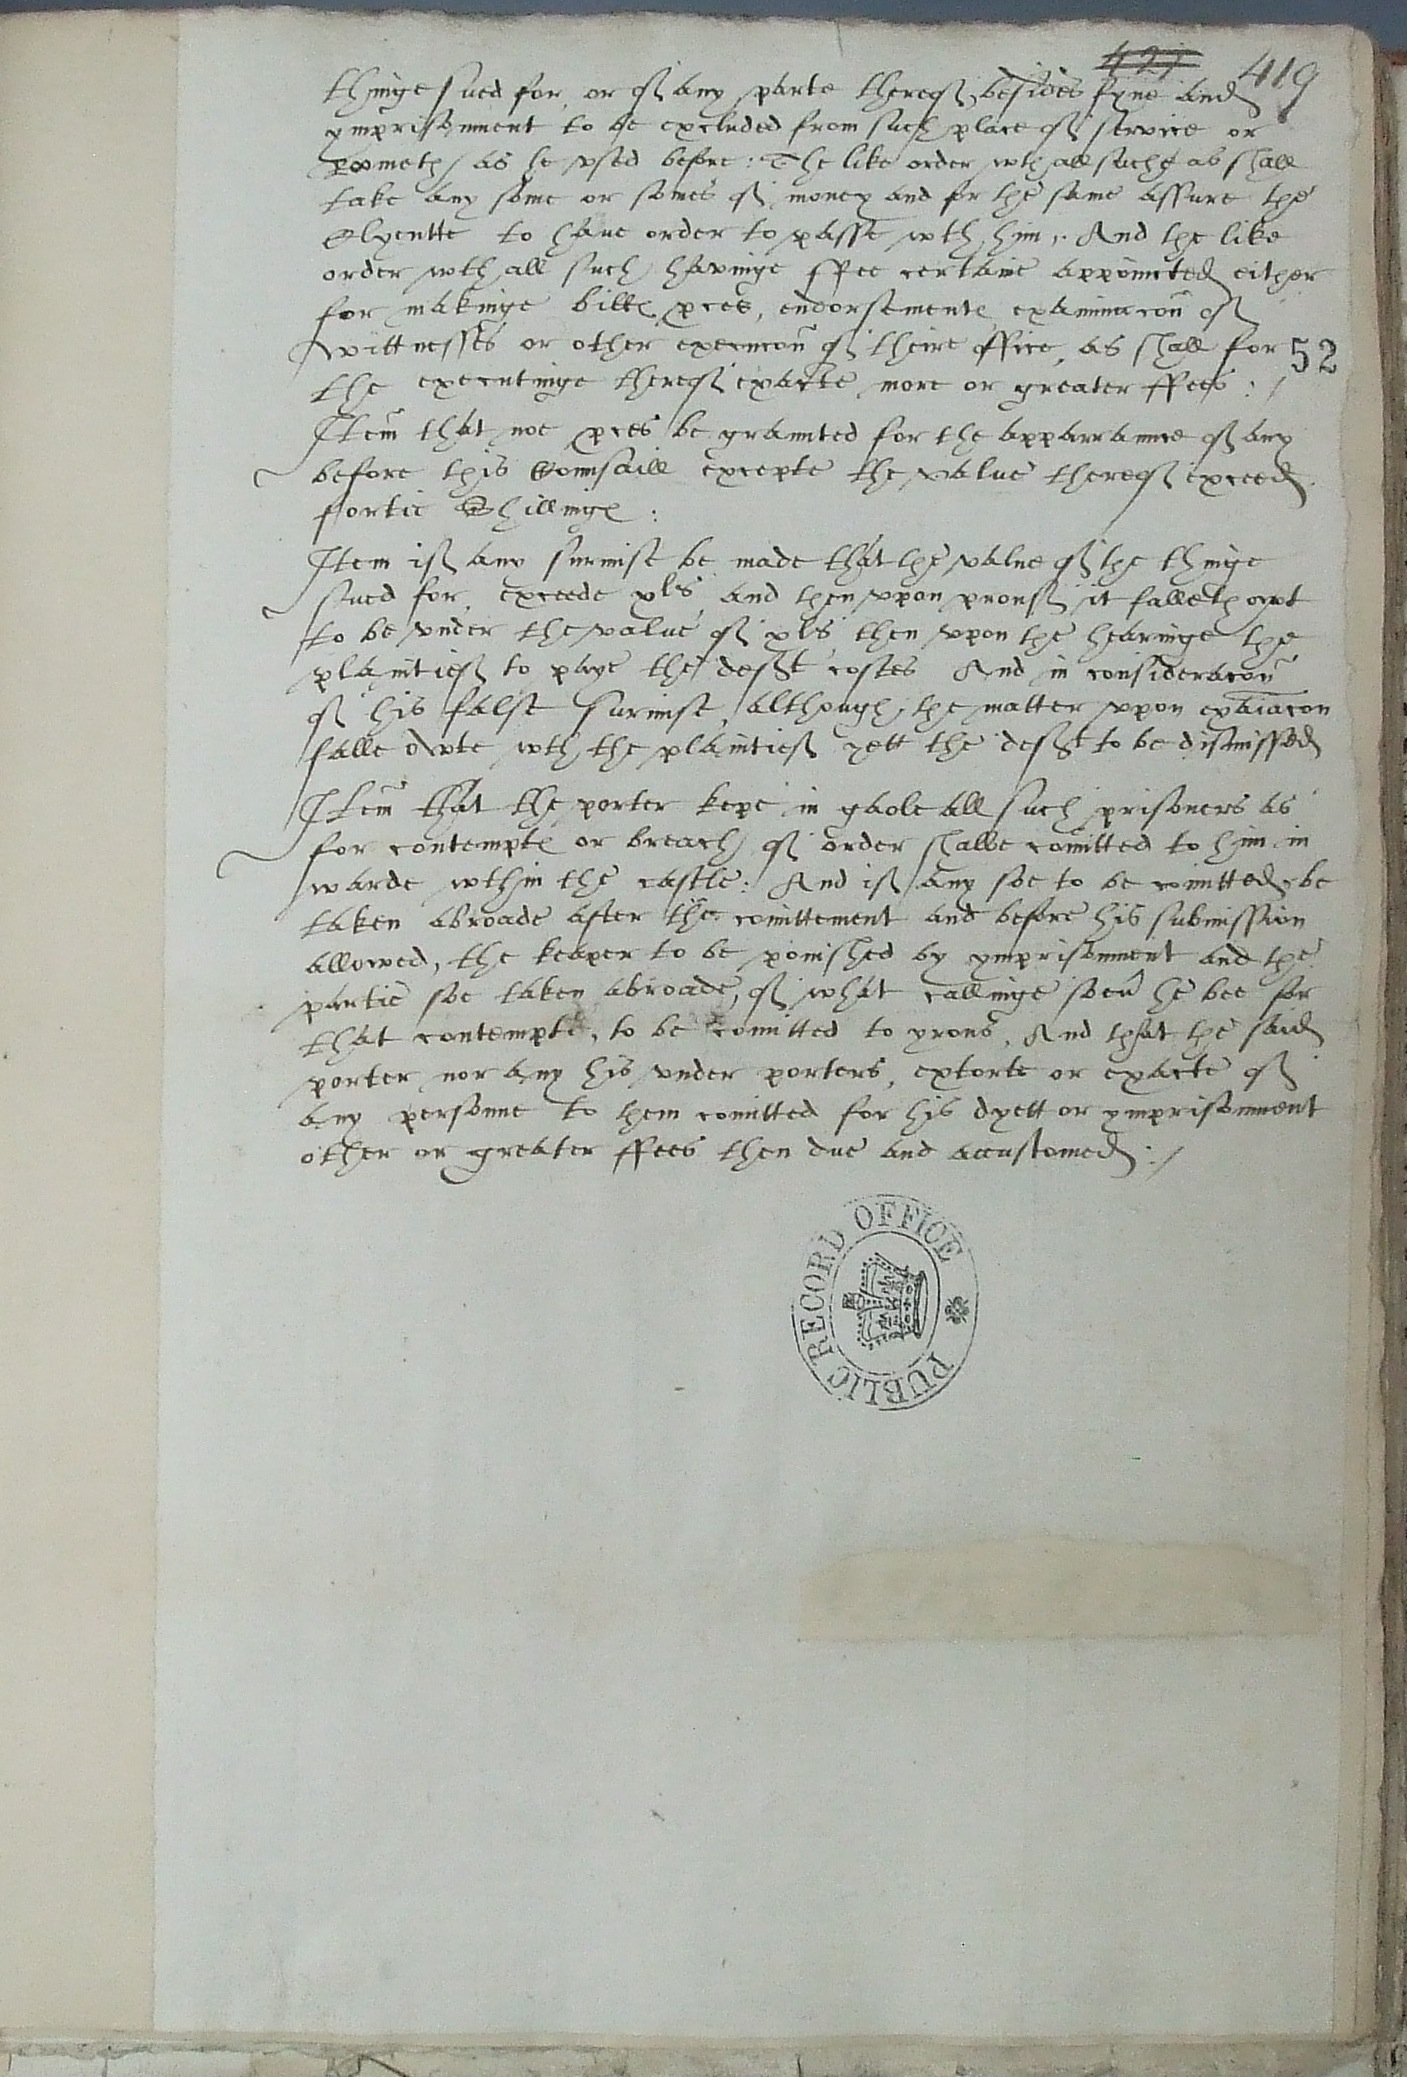 421 419
thinge sued for, or of any parte thereof, besides fyne and
ymprisonment to be excluded from such place of service or
as he vsed before : The like order wth all suche as shall
take any some or somes of money and for the same assure the
Clyentte to haue order to passe wth him, And the like
order wth all such havinge ffee certaine appointed either
for makinge bills, pces, endorsements, examinacon of
wittnesses or other execucon of theire office, as shall for
52
the executinge thereof exacte more or greater ffees : /
Itēm that noe pces be graunted for the apparraunce of any
before this Counsaill excepte the value thereof exceed
fortie Shillings :
Item if any surmise be made that the value of the thinge
sued for, exceede xls and then vpon prouf it falleth owt
to be vnder the value of xls then vpon the hearinge the
plaintief to paye the deft costes And in consideracon
of his false surmise, although the matter vpon exaiacon
falle owte wth the plaintief yett the deft to be dismissed
Itēm that the porter kepe in gaole all such prisoners as
for contempte or breach of order shalbe comitted to him in
warde wthin the castle : And if any soe to be comitted, be
taken abroade after the comittement and before his submission
allowed, the keaper to be ponished by ymprisonment and the
partie soe taken abroade, of what callinge soeu he bee for
that contempte, to be comitted to yrons, And that the said
porter nor any his vnder porters, extorte or exacte of
any personne to them comitted for his dyett or ymprisonment
other or greater ffees then due and accustomed : /
PUBLIC RECORD OFFICE